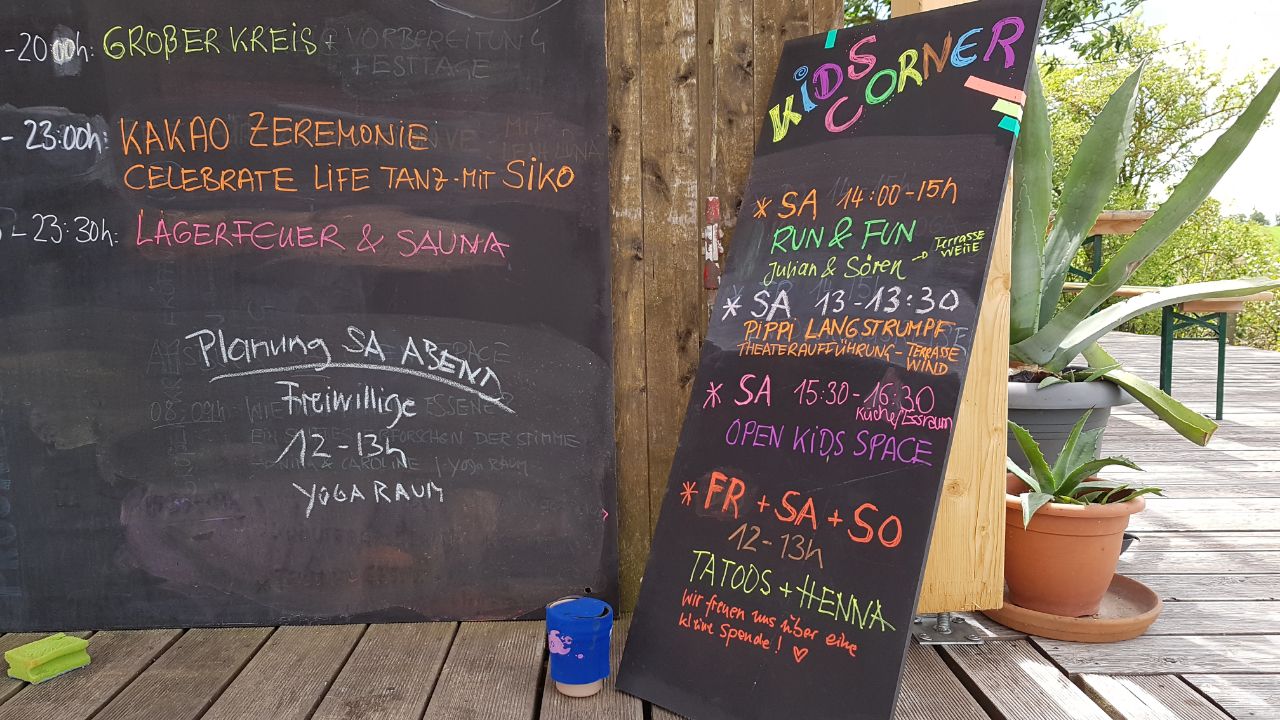 -20:00h: GROßER KREIS + VORBEREITUNG
FESTTAGE
- 23:00h: KAKAO ZEREMONIE
CELEBRATE LIFE TANZ·MIT SIKO
- 23:30h: LAGERFEUER & SAUNA
Planung SA ABEND
Freiwillige
12-13h
YOGA RAUM
KiDS
CORNER
* SA 14:00-15h
RUN & FUN
Julian & Sören → Terrasse
WEITE
* SA 13-13:30
PIPPI LANGSTRUMPF
THEATERAUFFÜHRUNG - TERRASSE
WIND
* SA 15:30-16:30
Küche/Essraum
OPEN KiDS SPACE
* FR + SA + SO
12-13h
TATOOS + HENNA
Wir freuen uns über eine
kleine Spende! ♡